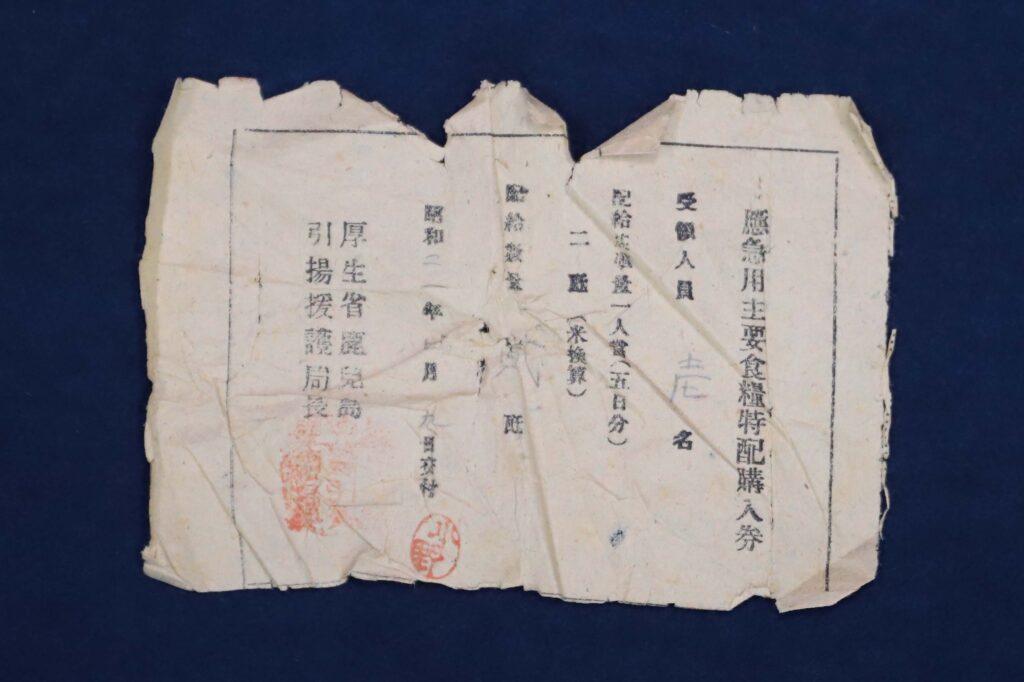 應急用主要食糧特配購入券
受領人員 壱 名
配給基準量一人當(五日分)
二瓩(米換算)
配給数量 貳 瓩
昭和二一年 月 九日交付
厚生省鹿兒島
引揚援護局長
水野